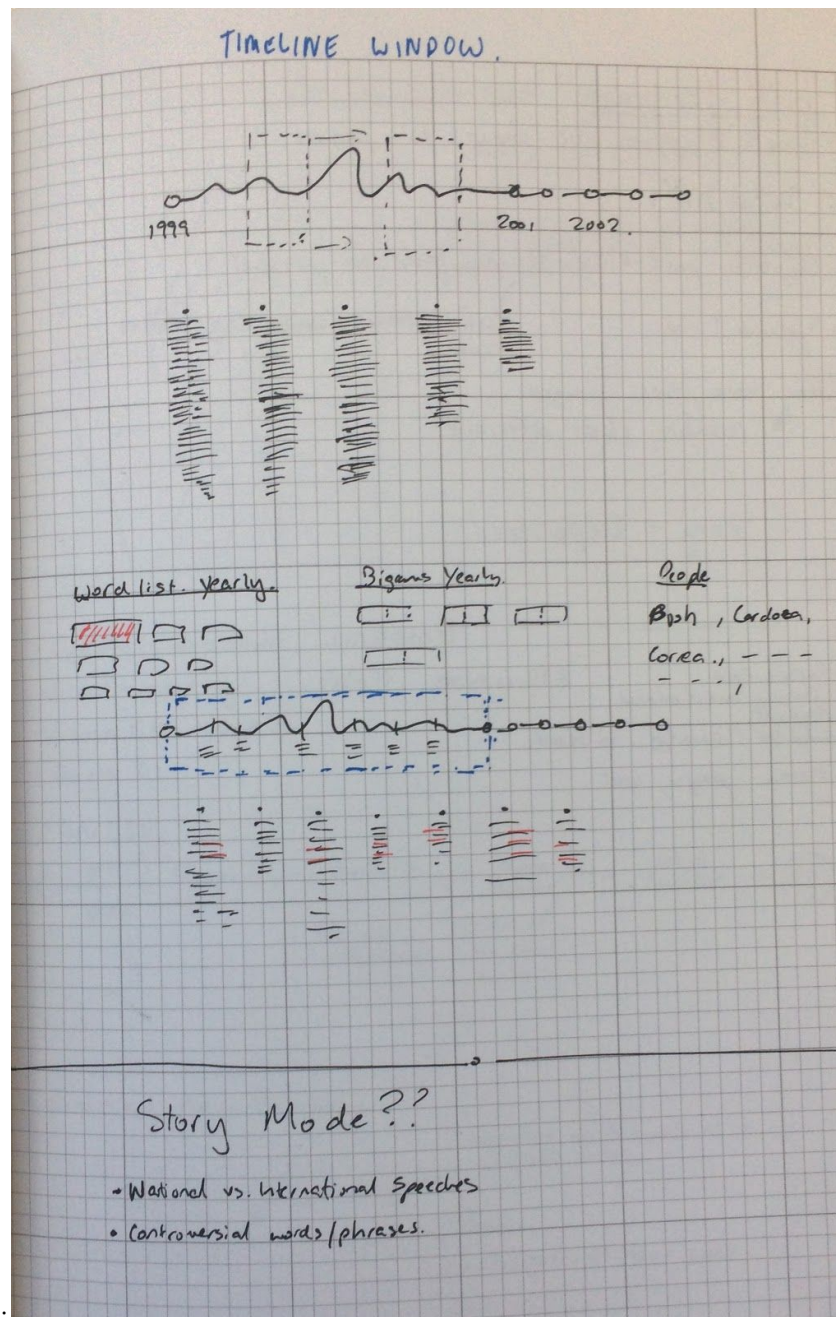 TIMELINE WINDOW.
1999 2001 2002.
Word list. yearly. Bigams Yearly. People
, Cordoza,
Correa.,
Story Mode??
• National vs. International Speeches
• Controversial words/phrases.